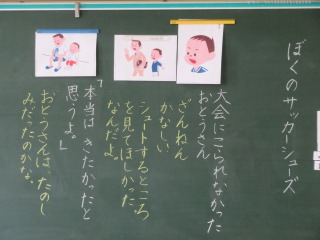 ぼくのサッカーシューズ
大会にこられなかった
おとうさん
ざんねん
かなしい
シュートするところ
を見てほしかった
なんだよ。
「本当は きたかったと
思うよ。」
おとうさんは、たのし
みだったのかな。